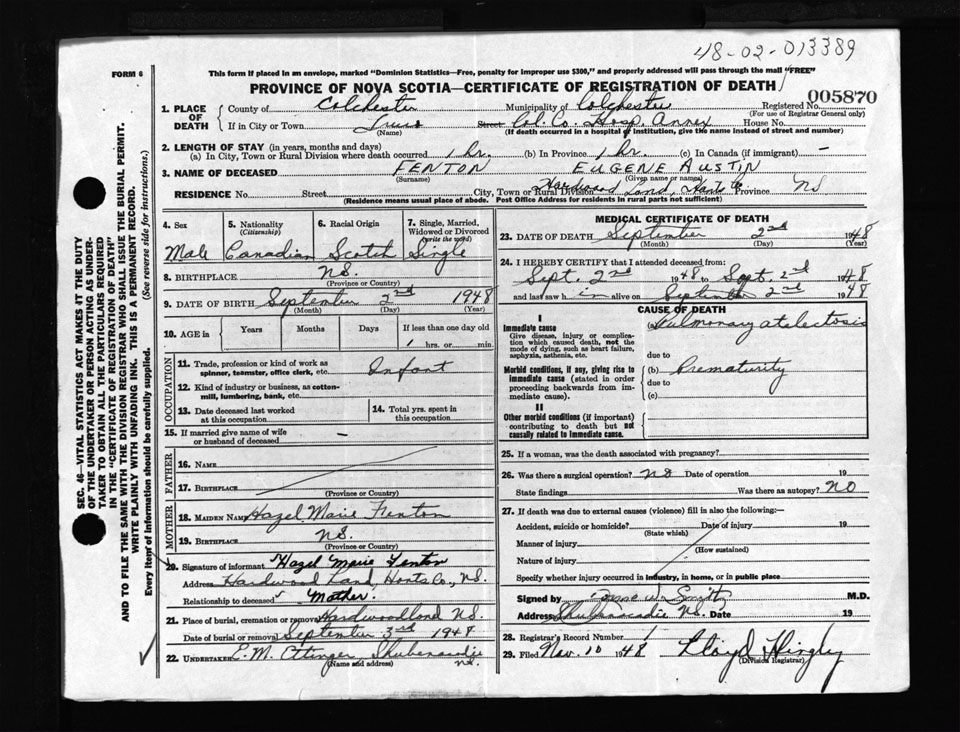 48-02-013389
FORM 6
This form if placed in an envelope, marked "Dominion Statistics—Free, penalty for improper use $300," and properly addressed will pass through the mail "FREE"
PROVINCE OF NOVA SCOTIA—CERTIFICATE OF REGISTRATION OF DEATH
005870
1. PLACE OF DEATH
County of Colchester Municipality of Colchester Registered No.
(For use of Registrar General only)
If in City or Town Truro Street Col. Co. Hosp. Annex House No.
(Name) (If death occurred in a hospital or institution, give the name instead of street and number)
2. LENGTH OF STAY (in years, months and days)
(a) In City, Town or Rural Division where death occurred 1 hr. (b) In Province 1 hr. (c) In Canada (if immigrant) —
3. NAME OF DECEASED FENTON EUGENE AUSTIN
(Surname) (Given name or names)
RESIDENCE No. Street City, Town or Rural Division Hardwood Land, Hants Co Province NS
(Residence means usual place of abode. Post Office Address for residents in rural parts not sufficient)
4. Sex Male
5. Nationality (Citizenship) Canadian
6. Racial Origin Scotch
7. Single, Married, Widowed or Divorced (write the word) Single
8. BIRTHPLACE N.S.
(Province or Country)
9. DATE OF BIRTH September 2nd 1948
(Month) (Day) (Year)
10. AGE in Years Months Days If less than one day old
1 hrs. or min.
OCCUPATION
11. Trade, profession or kind of work as spinner, teamster, office clerk, etc. Infant
12. Kind of industry or business, as cotton-mill, lumbering, bank, etc.
13. Date deceased last worked at this occupation
14. Total yrs. spent in this occupation
15. If married give name of wife or husband of deceased —
FATHER
16. NAME
17. BIRTHPLACE
(Province or Country)
MOTHER
18. MAIDEN NAME Hazel Marie Fenton
19. BIRTHPLACE N.S.
(Province or Country)
20. Signature of informant Hazel Marie Fenton
Address Hardwood Land, Hants Co., N.S.
Relationship to deceased Mother.
21. Place of burial, cremation or removal Hardwoodland N.S.
Date of burial or removal September 3rd 1948
22. UNDERTAKER E. M. Ettinger Shubenacadie N.S.
(Name and address)
MEDICAL CERTIFICATE OF DEATH
23. DATE OF DEATH September 2nd 1948
(Month) (Day) (Year)
24. I HEREBY CERTIFY that I attended deceased from:
Sept. 2nd 1948 to Sept. 2nd 1948
and last saw h im alive on September 2nd 1948
CAUSE OF DEATH
I
Immediate cause
Give disease, injury or complication which caused death, not the mode of dying, such as heart failure, asphyxia, asthenia, etc.
(a) Pulmonary atelectosis
due to
Morbid conditions, if any, giving rise to immediate cause (stated in order proceeding backwards from immediate cause).
(b) Prematurity
due to
(c)
II
Other morbid conditions (if important) contributing to death but not causally related to immediate cause.
25. If a woman, was the death associated with pregnancy?
26. Was there a surgical operation? no Date of operation 19
State findings Was there an autopsy? NO
27. If death was due to external causes (violence) fill in also the following:—
Accident, suicide or homicide? Date of injury 19
(State which)
Manner of injury
(How sustained)
Nature of injury
Specify whether injury occurred in industry, in home, or in public place
Signed by Smith M.D.
Address Shubenacadie N.S. Date 19
28. Registrar's Record Number 1
29. Filed Nov. 10 1948 Lloyd
(Division Registrar)
SEC. 46—VITAL STATISTICS ACT MAKES IT THE DUTY
OF THE UNDERTAKER OR PERSON ACTING AS UNDER-
TAKER TO OBTAIN ALL THE PARTICULARS REQUIRED
IN THE "CERTIFICATE OF REGISTRATION OF DEATH"
AND TO FILE THE SAME WITH THE DIVISION REGISTRAR WHO SHALL ISSUE THE BURIAL PERMIT.
WRITE PLAINLY WITH UNFADING INK. THIS IS A PERMANENT RECORD.
Every item of information should be carefully supplied. (See reverse side for instructions.)